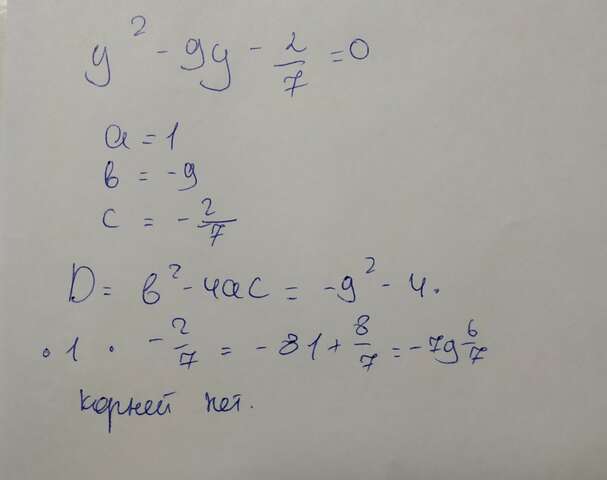 y² - 9y - 2/7 = 0
a = 1
b = -9
c = -2/7
D = b² - 4ac = -9² - 4 ·
· 1 · -2/7 = -81 + 8/7 = -79 6/7
корней нет.